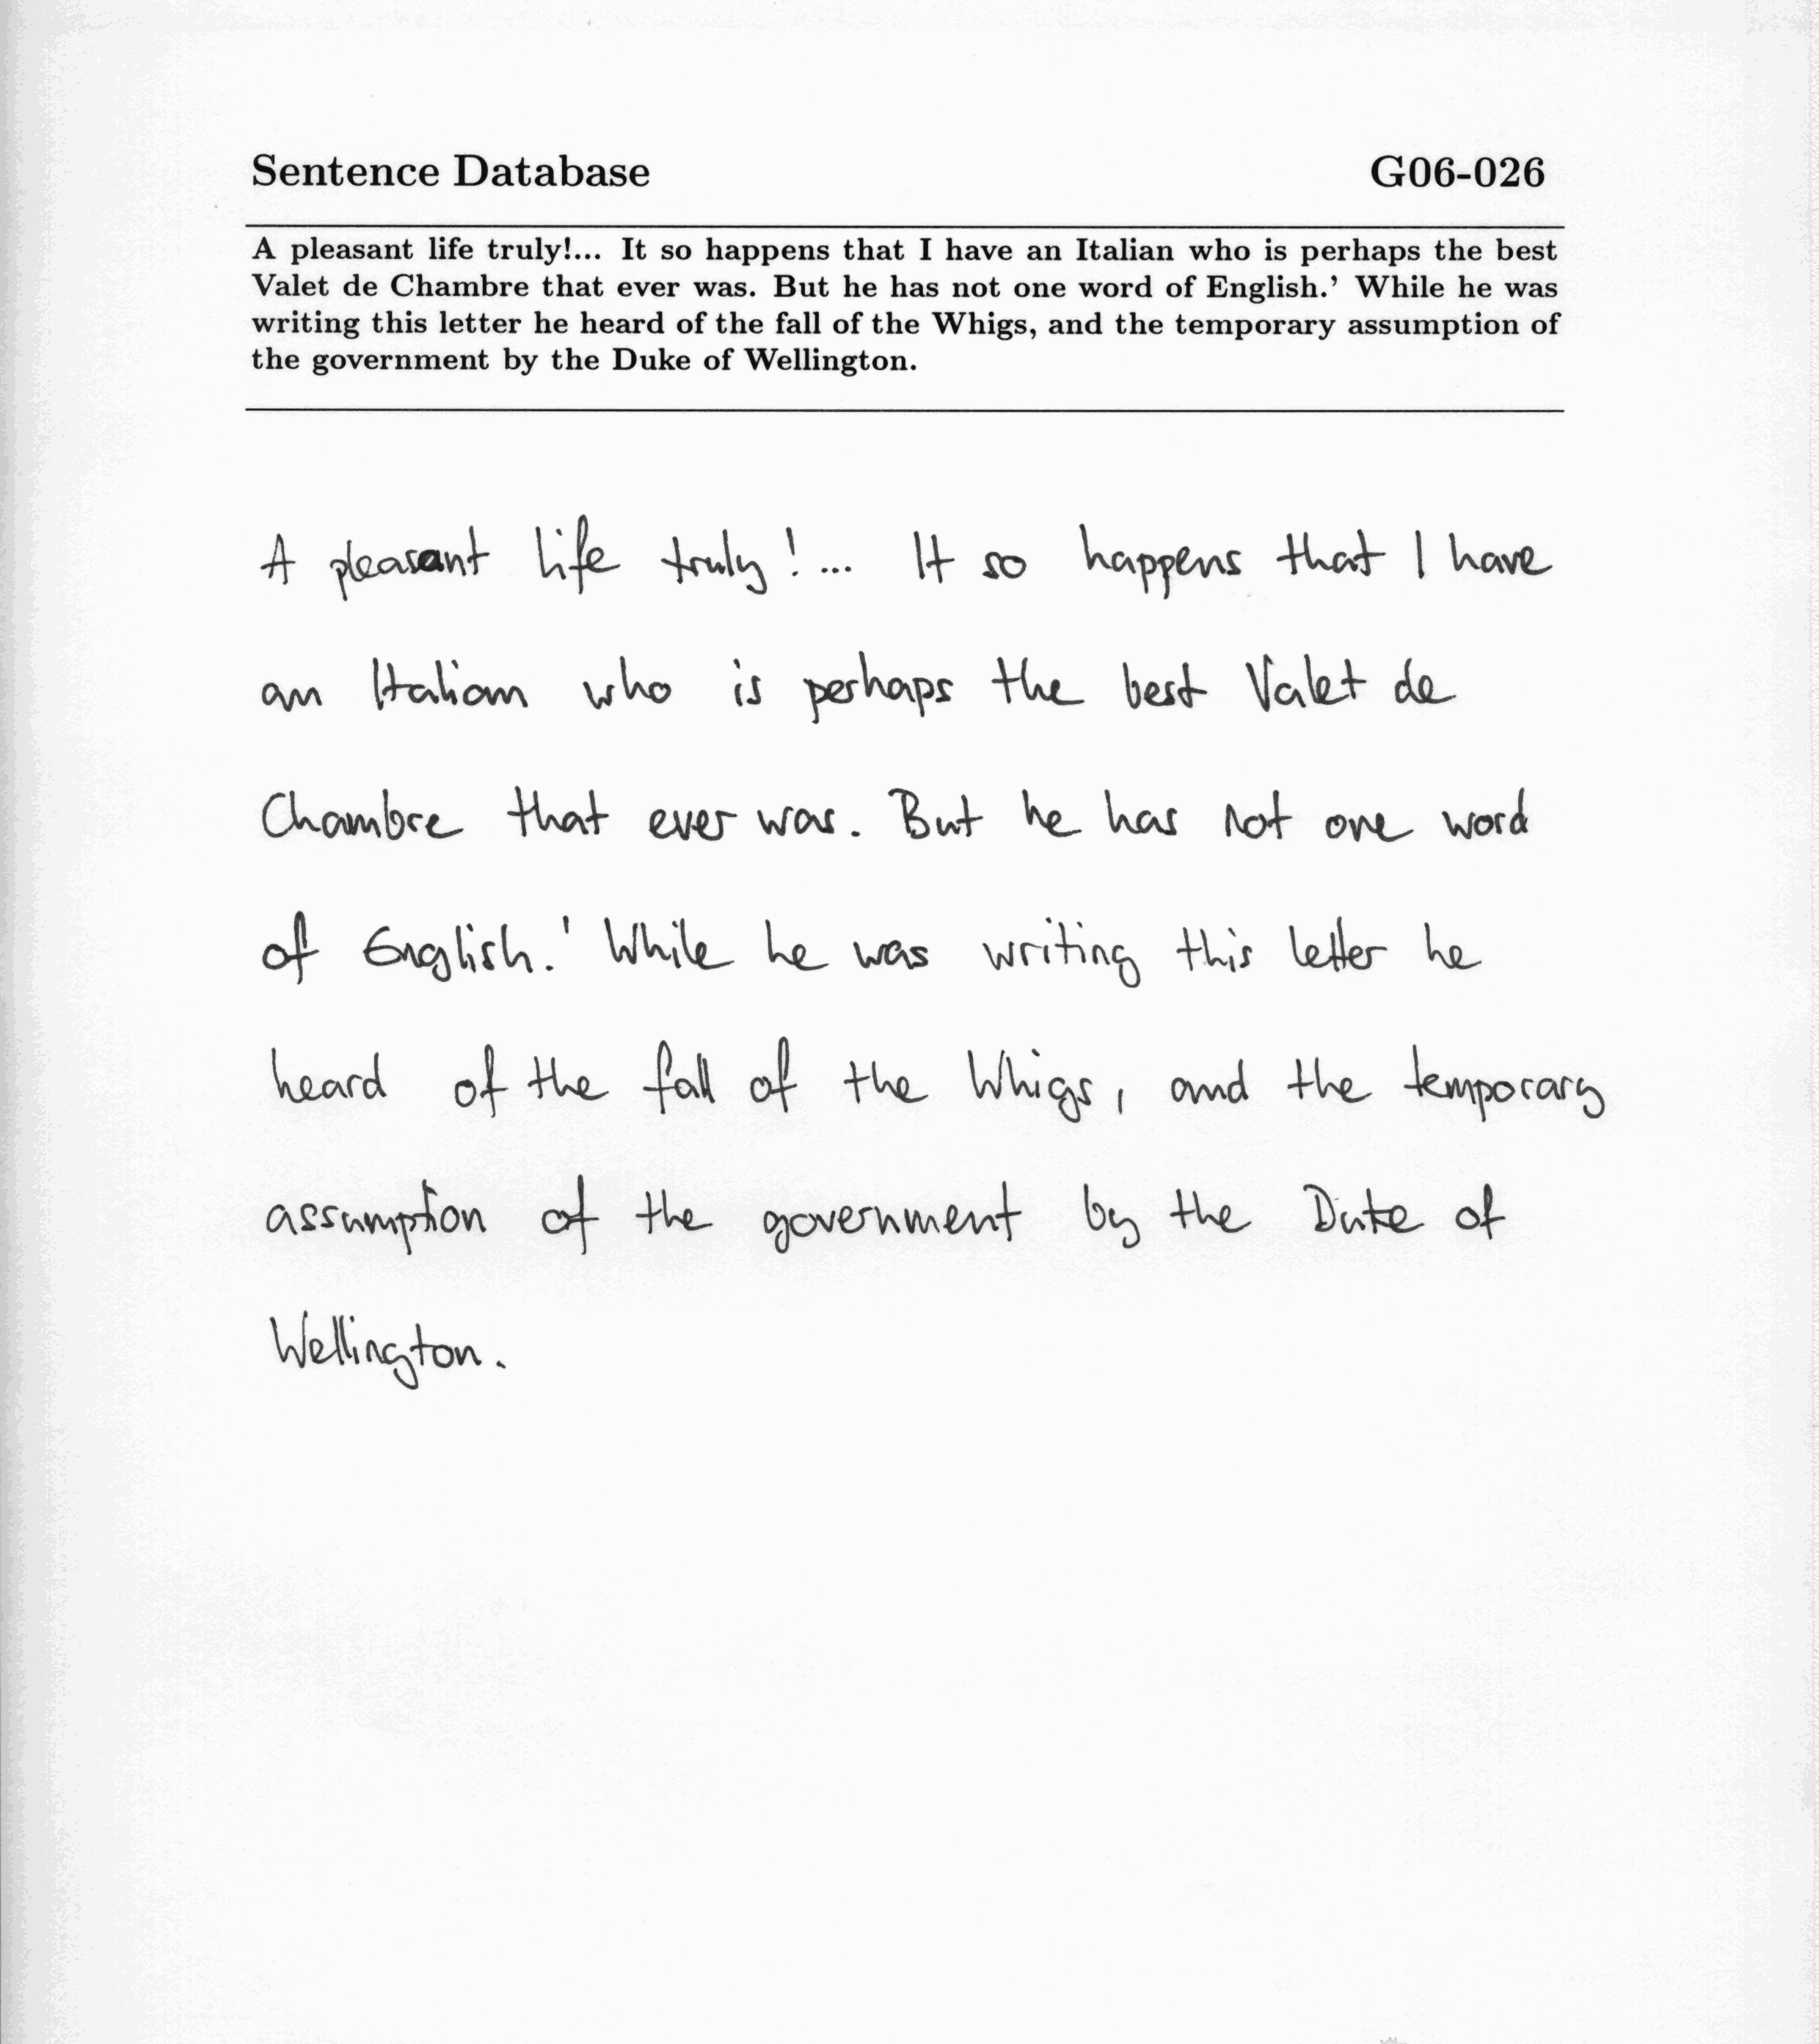 Sentence Database G06-026
A pleasant life truly!... It so happens that I have an Italian who is perhaps the best
Valet de Chambre that ever was. But he has not one word of English.' While he was
writing this letter he heard of the fall of the Whigs, and the temporary assumption of
the government by the Duke of Wellington.
A pleasant life truly!... It so happens that I have
an Italian who is perhaps the best Valet de
Chambre that ever was. But he has not one word
of English.' While he was writing this letter he
heard of the fall of the Whigs, and the temporary
assumption of the government by the Duke of
Wellington.